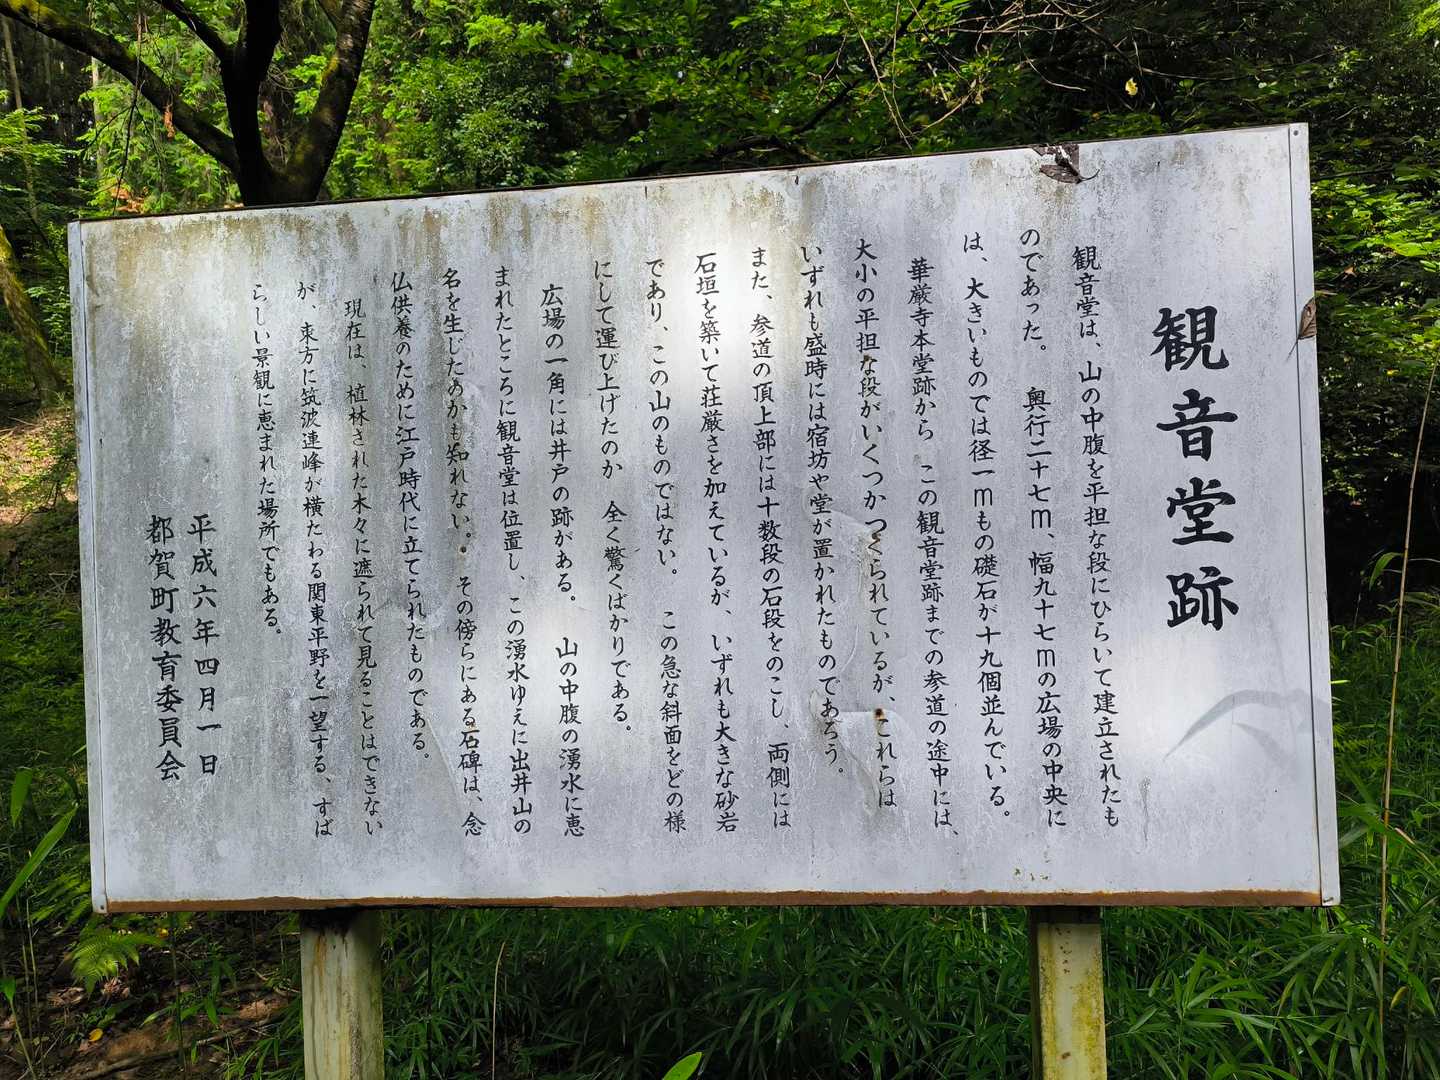 観音堂跡
観音堂は、山の中腹を平担な段にひらいて建立されたも
のであった。 奥行二十七m、幅九十七mの広場の中央に
は、大きいものでは径一mもの礎石が十九個並んでいる。
華厳寺本堂跡から この観音堂跡までの参道の途中には、
大小の平担な段がいくつかつくられているが、これらは
いずれも盛時には宿坊や堂が置かれたものであろう。
また、参道の頂上部には十数段の石段をのこし、両側には
石垣を築いて荘厳さを加えているが、いずれも大きな砂岩
であり、この山のものではない。 この急な斜面をどの様
にして運び上げたのか 全く驚くばかりである。
広場の一角には井戸の跡がある。 山の中腹の湧水に恵
まれたところに観音堂は位置し、この湧水ゆえに出井山の
名を生じたのかも知れない。 その傍らにある石碑は、念
仏供養のために江戸時代に立てられたものである。
現在は、植林された木々に遮られて見ることはできない
が、東方に筑波連峰が横たわる関東平野を一望する、すば
らしい景観に恵まれた場所でもある。
平成六年四月一日
都賀町教育委員会